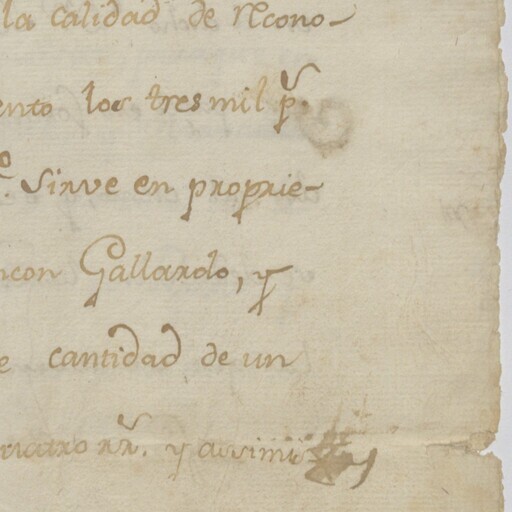 la calidad de Recono-
ento los tres mil p.s
o. Sirve en proprie-
ncon Gallardo, y
e cantidad de un
quatro rr.s y assimis